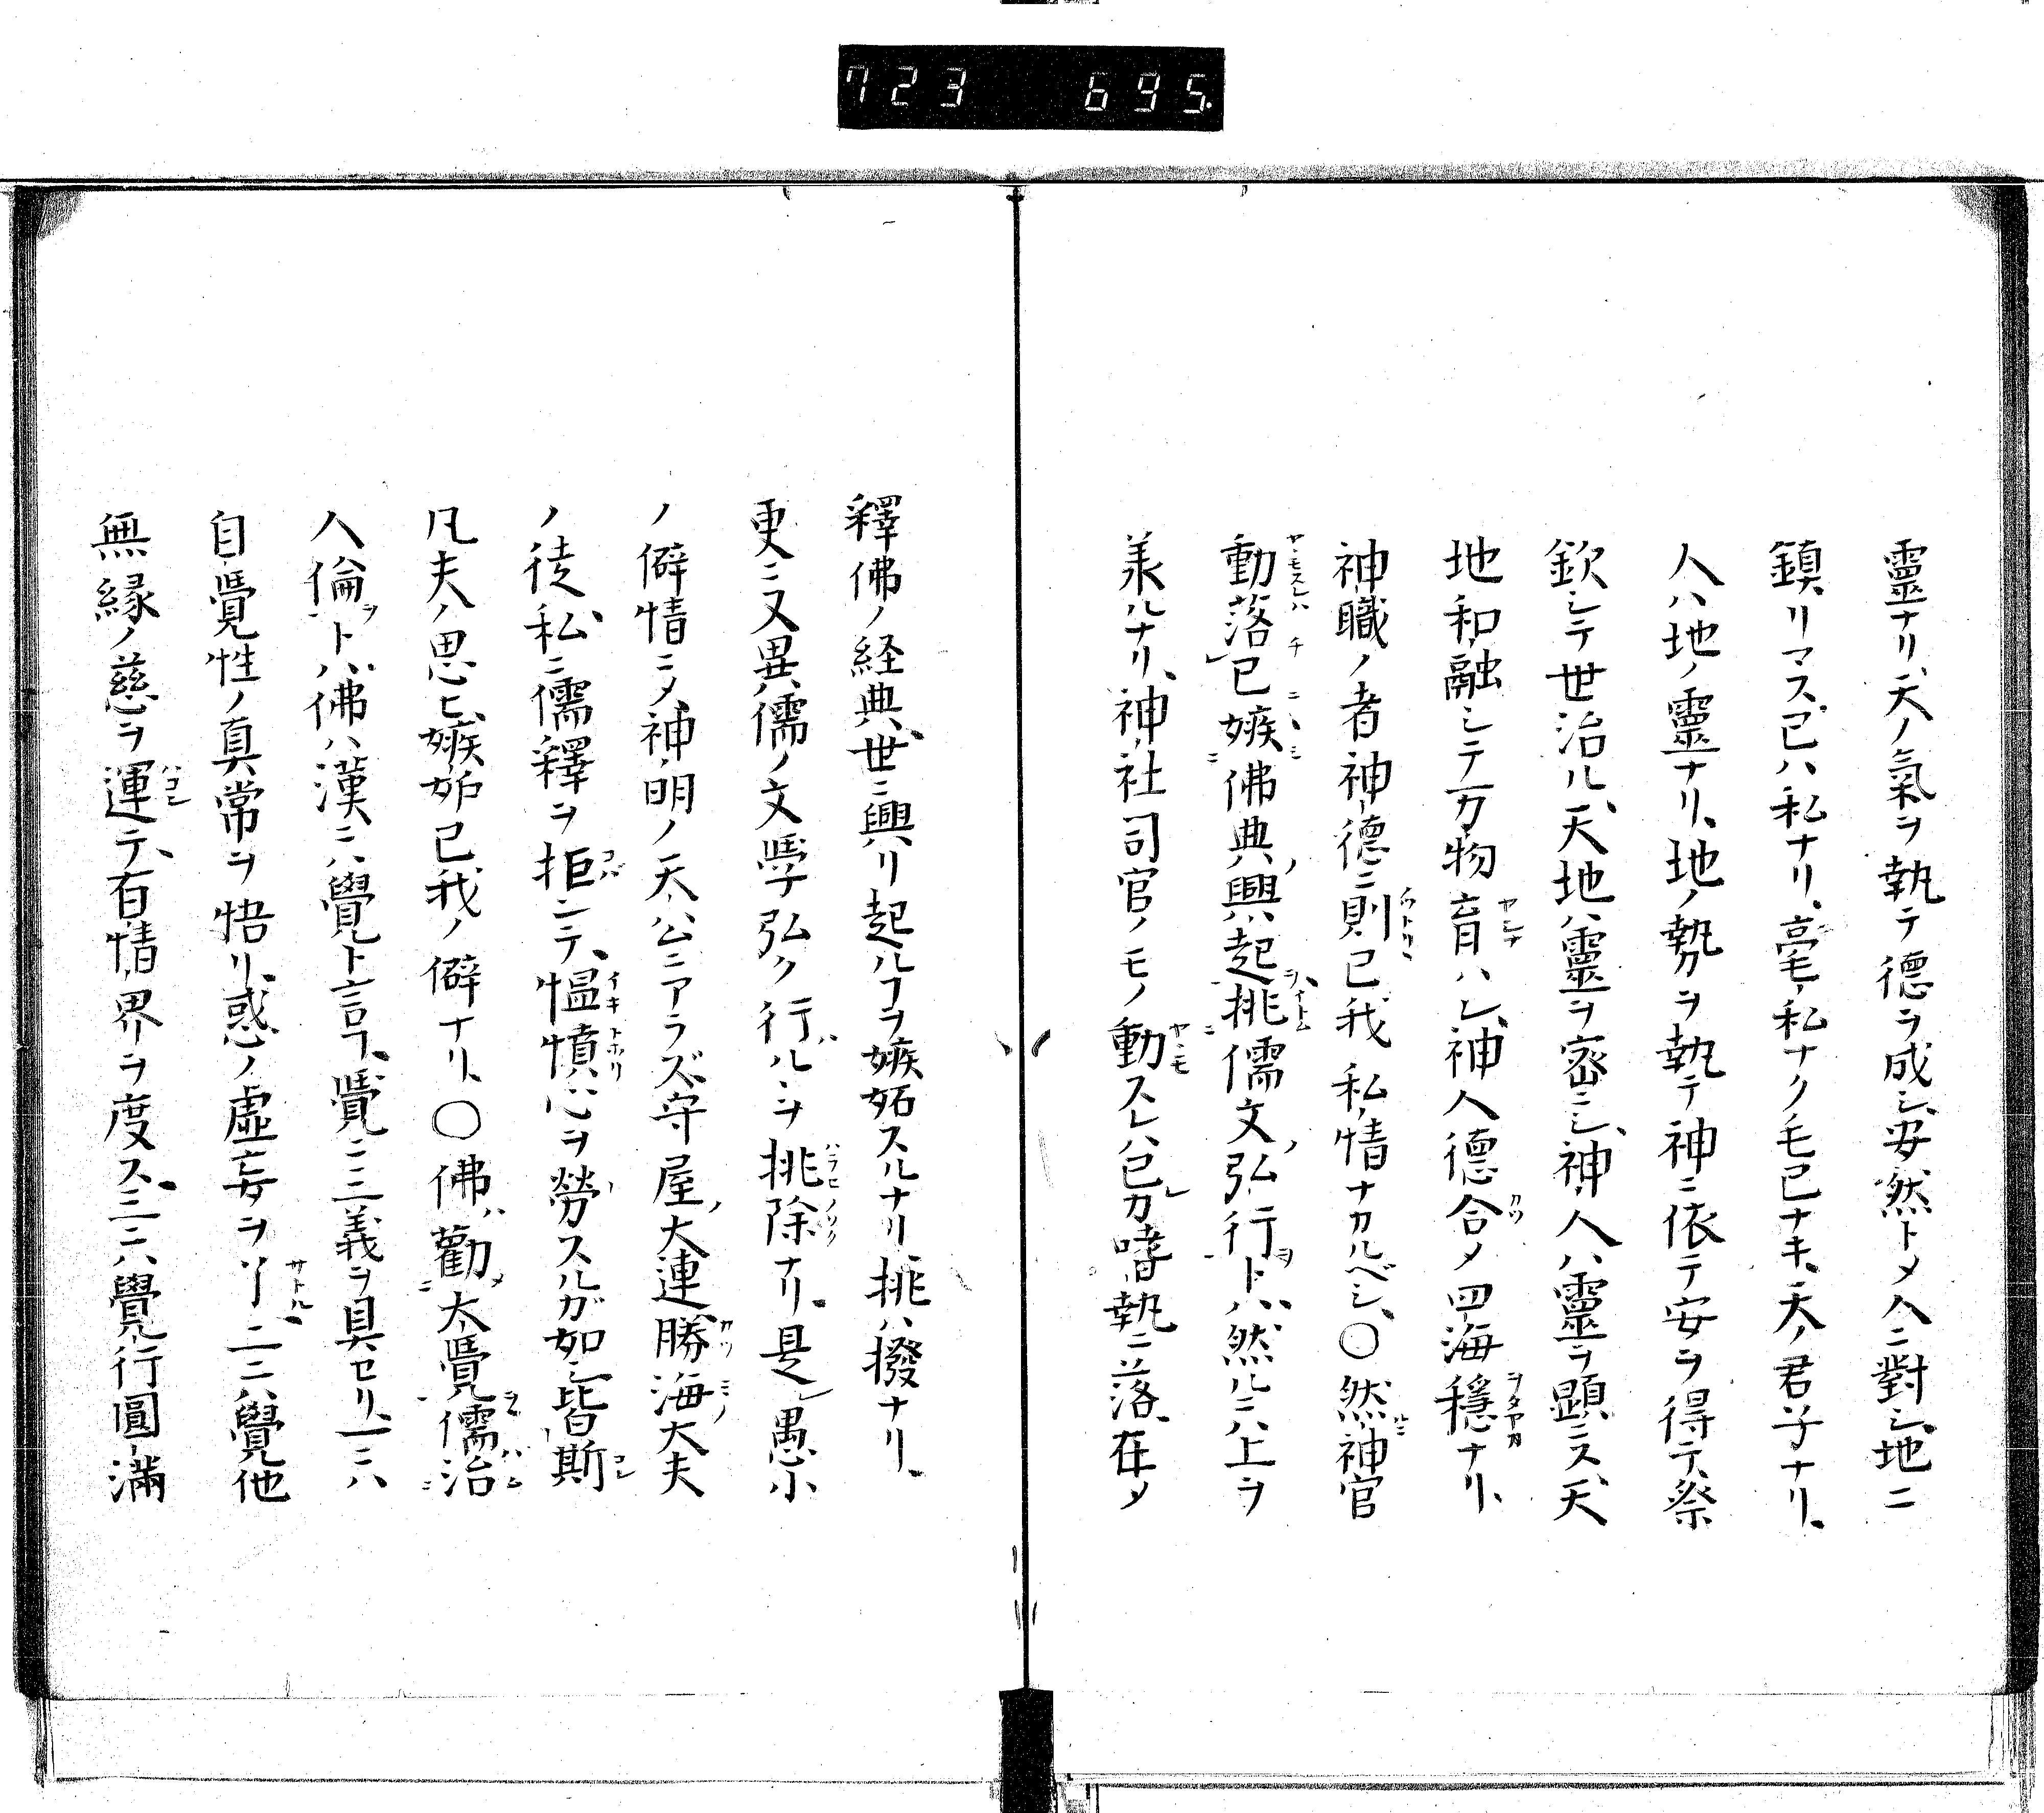 723 695.
靈ナリ、天ノ氣ヲ執テ德ヲ成シ、安然トメ人ニ對シ、地ニ
鎮リマス、已ハ私ナリ、毫モ私ナクモ已ナキ、天ノ君子ナリ、
人ハ地ノ靈ナリ、地ノ勢ヲ執テ神ニ依テ安ヲ得テ、祭
欽シテ世治ル、天地ハ靈ヲ密ニシ、神人ハ靈ヲ顕ニス、天
地和融シテ万物育ハレ、神人德合メ四海穩ナリ、
神職ノ者神德ニ則已我私情ナカルベシ、〇然神官
動落已嫉佛典ノ興起挑儒文ノ弘行トハ、然ルニハ上ヲ
羕ルナリ、神社司官ノモノ動スレハ已カ嗜執ニ落在メ
釋佛ノ経典、世ニ興リ起ルヿヲ嫉妬スルナリ、挑ハ撥ナリ、
更ニ又異儒ノ文學弘ク行ハルヽヲ挑除ナリ、是レ愚小
ノ僻情ニメ、神明ノ天公ニアラズ、守屋ノ大連、勝海大夫
ノ徒、私ニ儒釋ヲ拒ンテ、愠憤心ヲ勞スルガ如シ、皆斯
凡夫ノ思ヒ、嫉妒已我ノ僻ナリ、〇佛ハ勸大覺儒治
人倫トハ、佛ハ漢ニハ覺ト言フ、覺ニ三義ヲ具セリ、一ニハ
自覺性ノ真常ヲ悟リ、惑ノ虛妄ヲ了二ニハ覺他
無縁ノ慈ヲ運テ、有情界ヲ度ス、三ニハ覺行圓滿